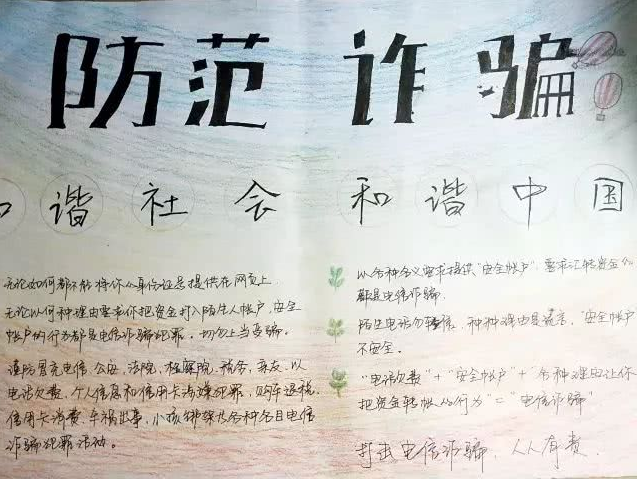 防范 诈骗
和谐社会 和谐中国
无论如何都不能将你的身份证号提供在网页上
无论以何种理由要求你把资金打入陌生人帐户,安全
帐户的行为都是电信诈骗犯罪。切勿上当受骗。
谨防冒充电信,公安,法院,检察院,税务,亲友,以
电话欠费,个人信息和信用卡涉嫌犯罪,购车退税,
信用卡消费,车祸出事,小孩绑架等各种名目电信
诈骗犯罪活动。
以各种名义要求提供“安全帐户”,要求汇转资金的
都是电信诈骗.
陌生电话勿轻信,种种理由是谎言,“安全帐户
不安全.
“电话欠费”+“安全帐户”+“各种理由让你
把资金转帐的行为”=“电信诈骗”
打击电信诈骗,人人有责.